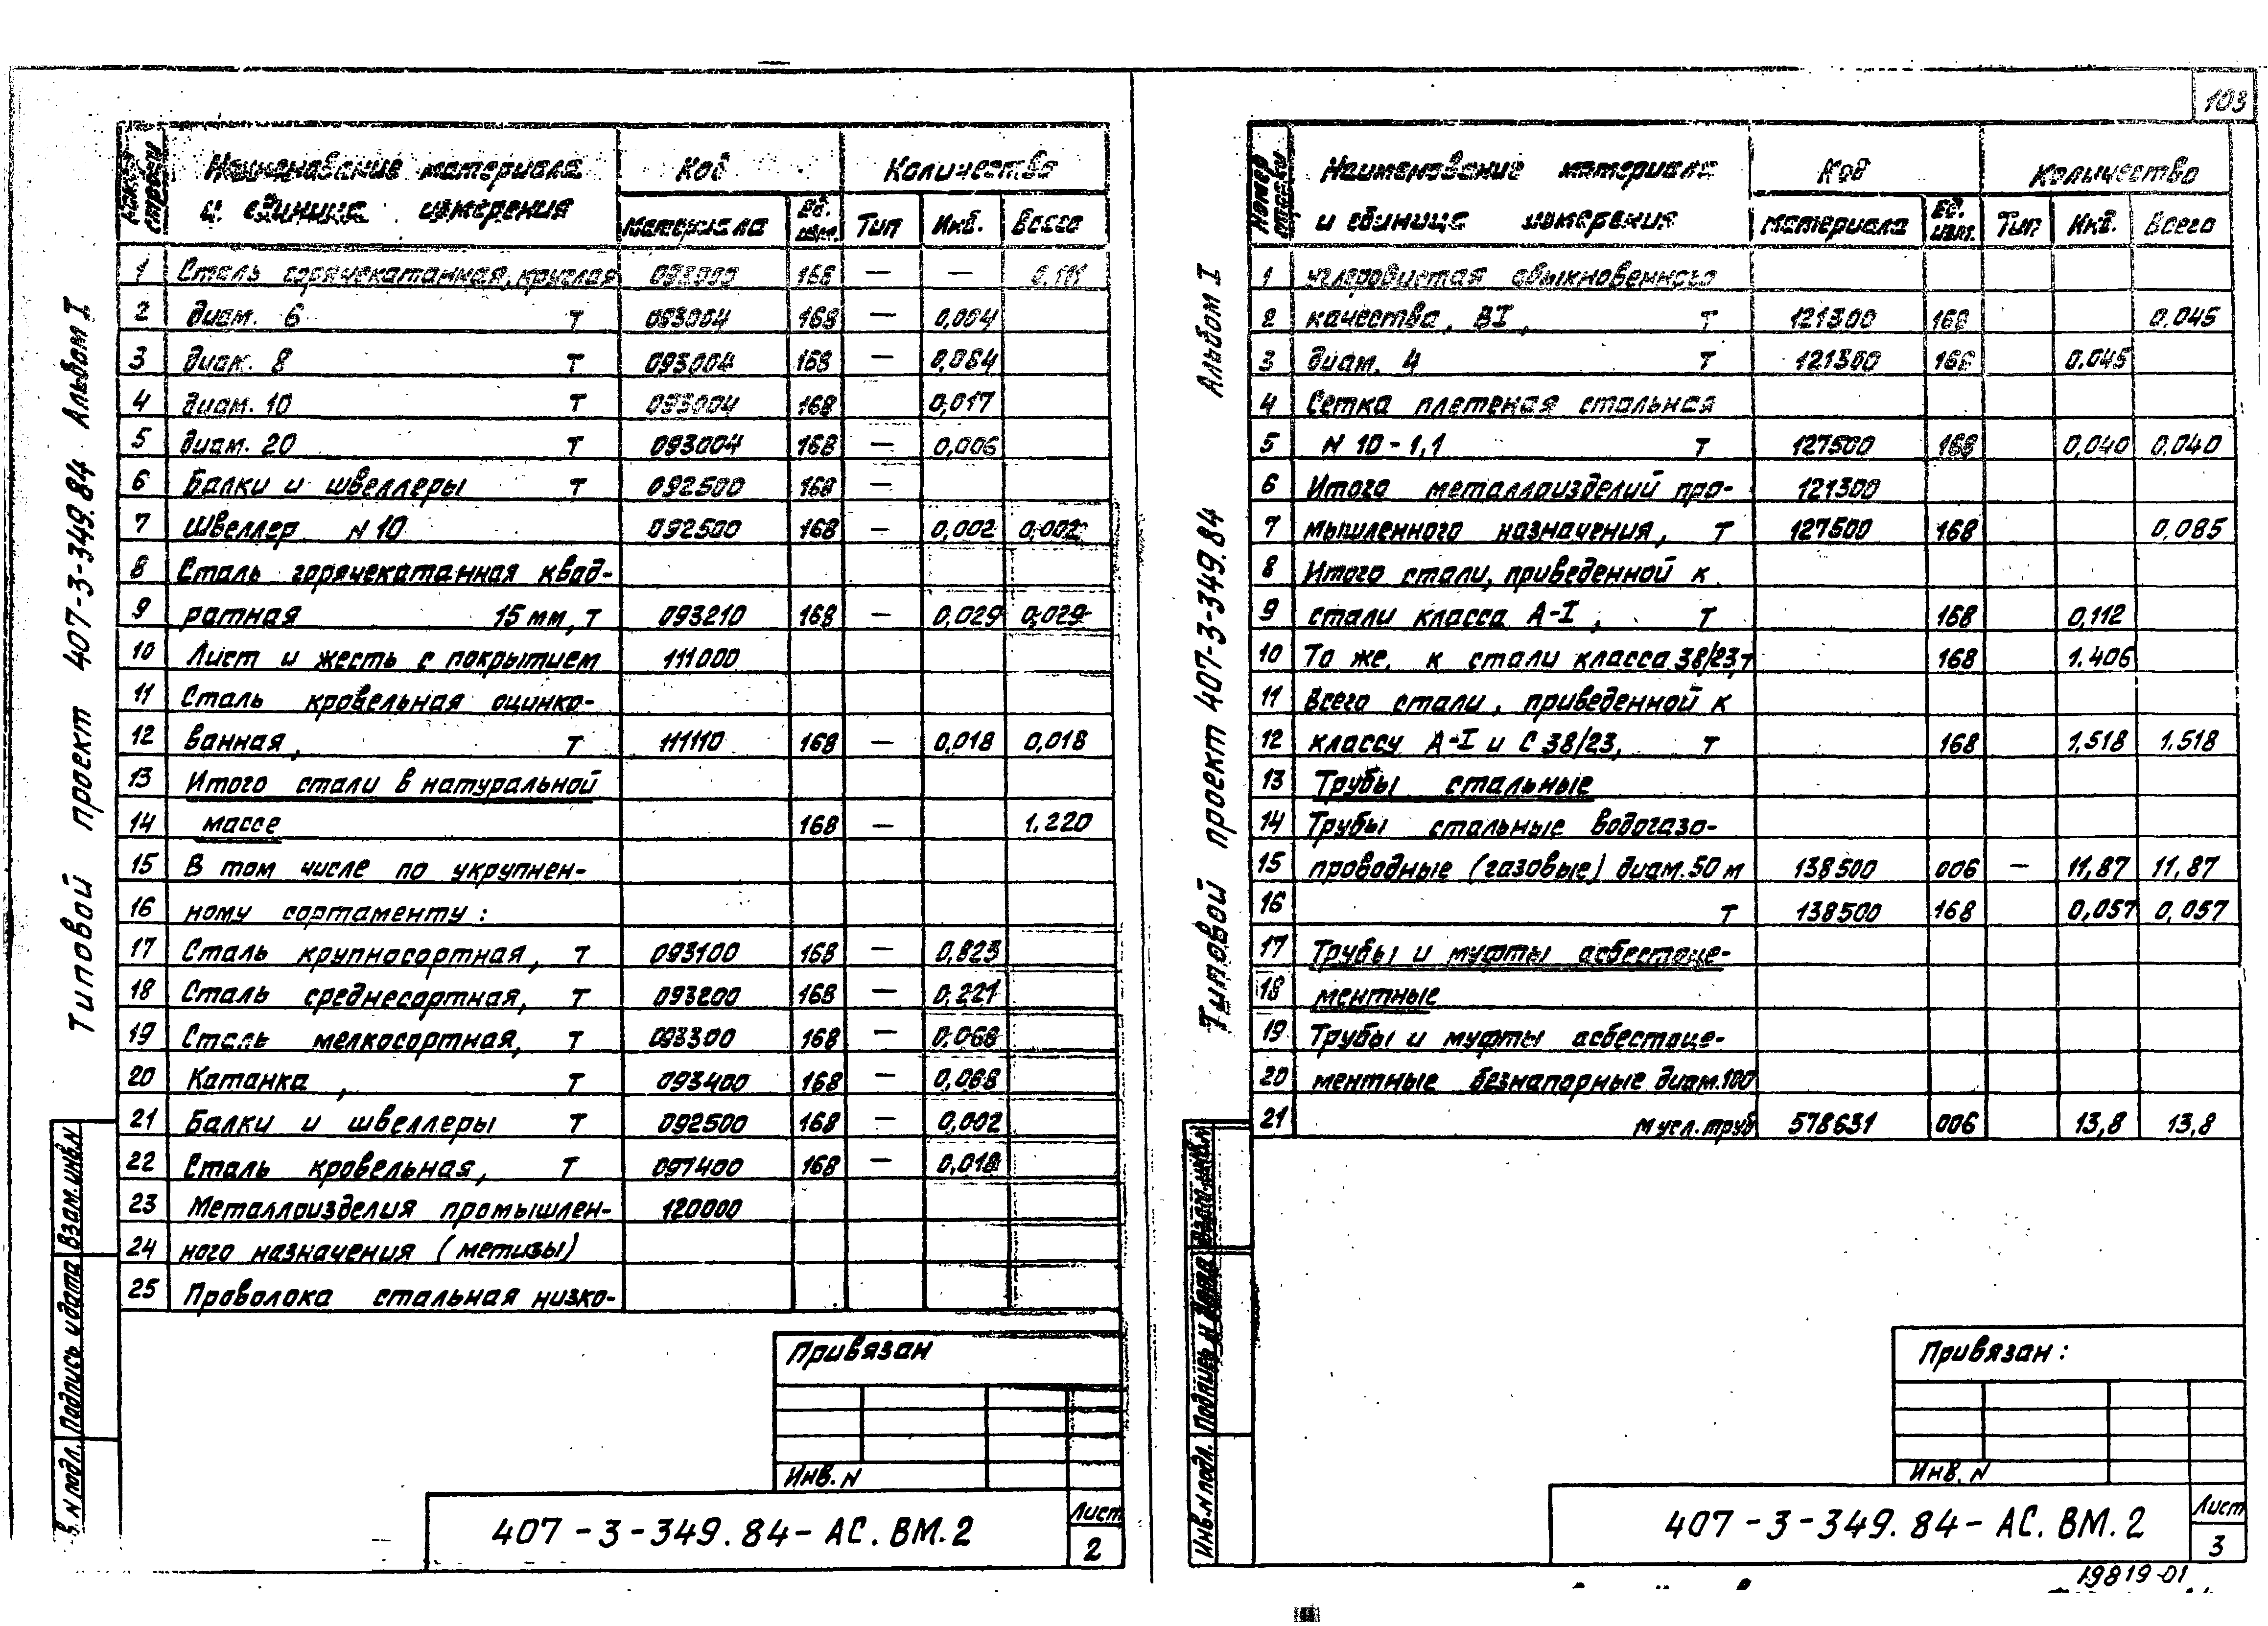 103
Типовой проект 407-3-349.84 Альбом I
Номер строки | Наименование материала и единица измерения | Код | Количество
материала | Ед. изм. | Тип | Инд. | Всего
1 Сталь горячекатанная, круглая 093000 168 — — 0.111
2 диам. 6 т 093004 168 —
3 диам. 8 т 093004 168 —
4 диам. 10 т 093004 168 0,017
5 диам. 20 т 093004 168 — 0,006
6 Балки и швеллеры т 092500 168 —
7 Швеллер N 10 092500 168 — 0,002 0,002
8 Сталь горячекатанная квад-
9 ратная 15 мм, т 093210 168 — 0,029 0,029
10 Лист и жесть с покрытием 111000
11 Сталь кровельная оцинко-
12 ванная, т 111110 168 — 0,018 0,018
13 Итого стали в натуральной
14 массе 168 — 1.220
15 В том числе по укрупнен-
16 ному сортаменту:
17 Сталь крупносортная, т 093100 168 — 0,823
18 Сталь среднесортная, т 093200 168 — 0,221
19 Сталь мелкосортная, т 093300 168 — 0,068
20 Катанка, т 093400 168 — 0,068
21 Балки и швеллеры т 092500 168 — 0,002
22 Сталь кровельная, т 097400 168 — 0,018
23 Металлоизделия промышлен- 120000
24 ного назначения (метизы)
25 Проволока стальная низко-
Взам.инв.N
Подпись и дата
в.N подл.
Привязан
Инв. N
407-3-349.84-АС.ВМ.2
Лист
2
Типовой проект 407-3-349.84 Альбом I
Номер строки | Наименование материала и единица измерения | Код | Количество
материала | Ед. изм. | Тип | Инд. | Всего
1 углеродистая обыкновенного
2 качества, ВI, т 121300 168 0.045
3 диам. 4 т 121300 168 0.045
4 Сетка плетеная стальная
5 N 10-1,1 т 127500 168 0,040 0,040
6 Итого металлоизделий про- 121300
7 мышленного назначения, т 127500 168 0,085
8 Итого стали, приведенной к
9 стали класса А-I, т 168 0,112
10 То же, к стали класса 38/23, т 168 1.406
11 Всего стали, приведенной к
12 классу А-I и С 38/23, т 168 1,518 1.518
13 Трубы стальные
14 Трубы стальные водогазо-
15 проводные (газовые) диам.50 м 138500 006 — 11,87 11,87
16 т 138500 168 0,057 0,057
17 Трубы и муфты асбестоце-
18 ментные
19 Трубы и муфты асбестоце-
20 ментные безнапорные диам.100
21 м усл.труб 578631 006 13,8 13,8
Взам.инв.N
Подпись и дата
Инв.N подл.
Привязан:
Инв. N
407-3-349.84-АС.ВМ.2
Лист
3
19819-01